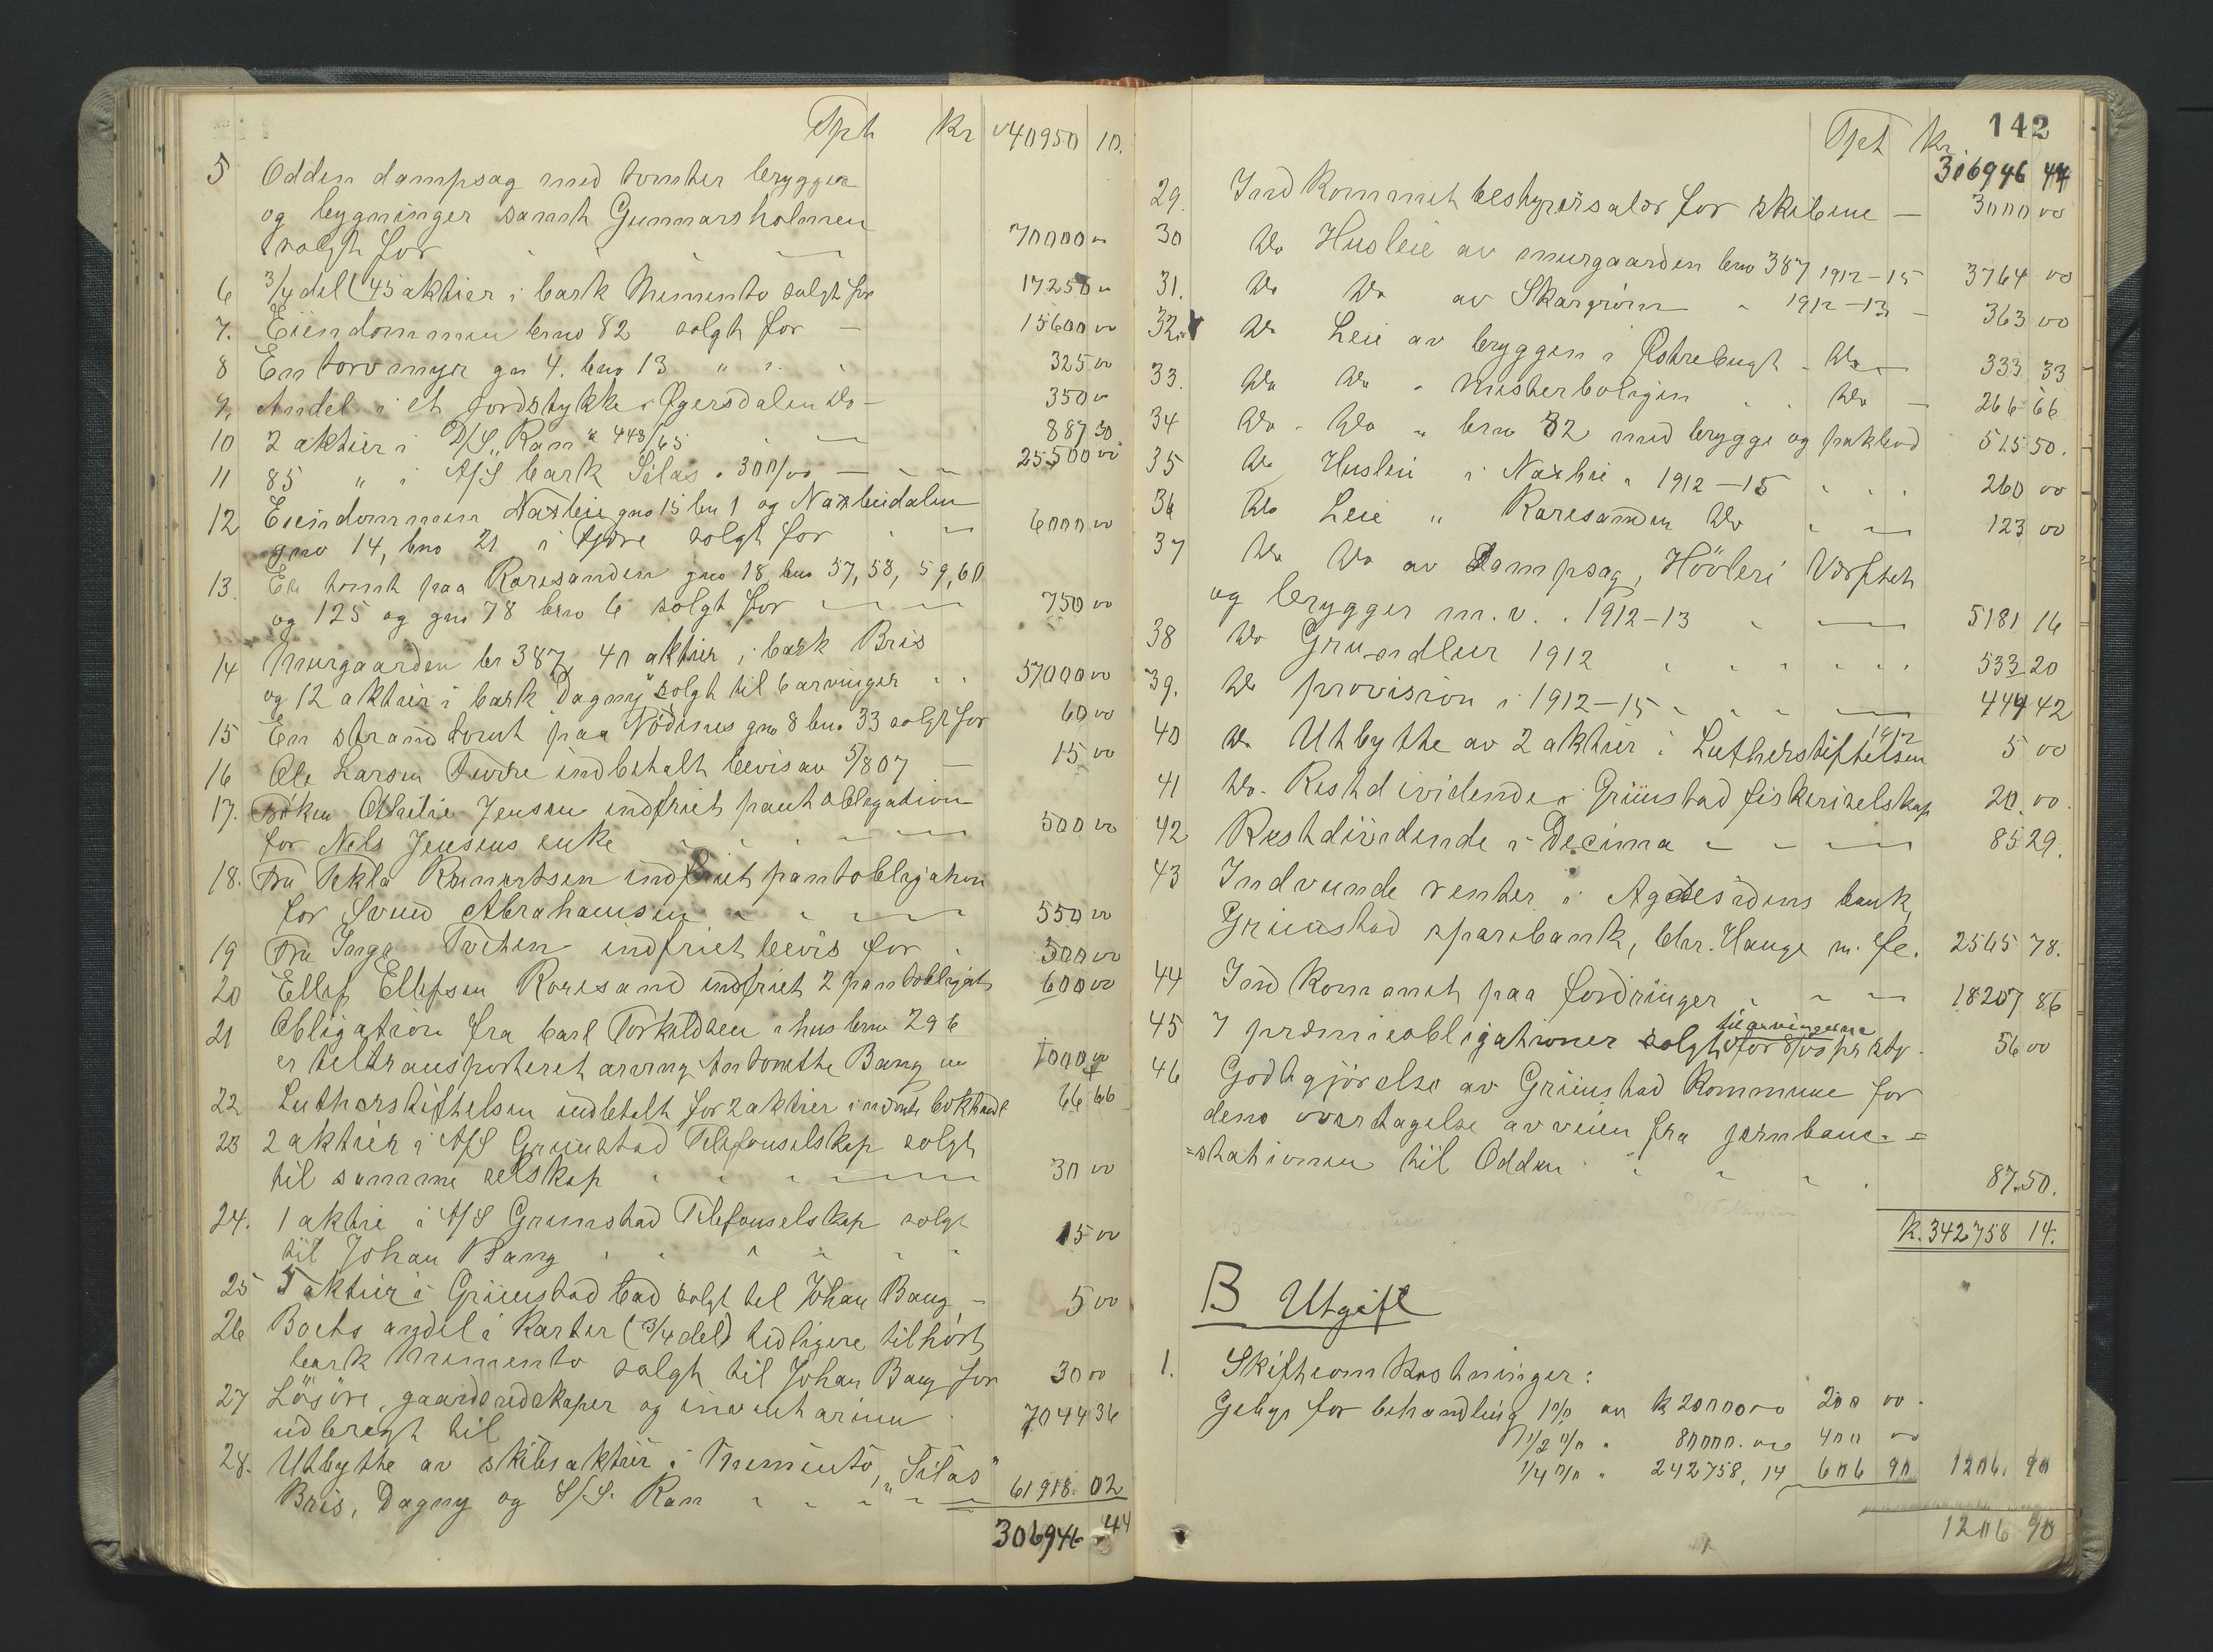 Tpt Kr 40950 10.
5 Odden dampsag med tomter brygger
og bygninger samt Gunnarsholmen
solgt for 70000 "
6 3/4 del (45 aktier i bark Memento solgt for 17250 "
7. Eiendommen bno 82 solgt for — 15600 00
8 En torvmyr gn 4. bno 13 " " 325 00
9. Andel i et jordstykke i Øgersdalen do — 350 "
10 2 aktier i D/S „Ran" a 443/65 887 30
11 85 " i A/S bark Silas a 300/00 — 25500 00
12 Eiendommen Naxbie gno 15 bn 1 og Naxbiedalen
gno 14, bno 21 i Fjære solgt for 6000.00
13. En tomt paa Roresanden gno 18, bno 57, 58, 59, 60
og 125 og gno 78 bno 6 solgt for 750 00
14 Murgaarden br 387, 40 aktier i bark Bris
og 12 aktier i bark „Dagny" solgt til 6 arvinger 57000 00
15 En strandtomt paa Vödenes gno 8 bno 33 solgt for 60 00
16 Ole Larsen indbetalt bevis av 5/8 07 — 15 00
17. Fröken Othilie Jensen indfriet pantobligation
for Nils Jensens enke 500 00
18. Fru Tekla Reinertsen indfriet pantobligation
for Svend Abrahamsen 550 00
19 Fru Inga Tveten indfriet bevis for 500 00
20 Ellef Ellefsen Roresand indfriet 2 pantobligat 600 00
21 Obligation fra Carl Torkildsen i hus bno 296
er teltransporteret arving Antonette Bang m 1000 00
22 Lutherstiftelsen indbetalt for 2 aktier i nævnte bokhandl 66 66
23 2 aktier i A/S Grimstad Telefonselskap solgt
til samme selskap 30 00
24. 1 aktie i A/S Grimstad Telefonselskap solgt
til Johan Bang 15 00
25 5 aktier i Grimstad bad solgt til Johan Bang — 5 00
26 Boets andel i Karter (3/4 del) tidligere tilhört
bark Memento solgt til Johan Bang for 30 00
27 Lösöre, gaardsredskaper og inventarium
udbragt til 7044 36
28. Utbytte av skibsaktier i Memento, „Silas"
Bris, Dagny og S/S. Ran 61918. 02
306946 44
142
Tpt Kr
306946 44
29. Indkommet bestyrersalær for skibene — 3000 00
30 do Husleie av murgaarden bno 387 1912–15 3764 00
31. do do av Skargröm " 1912–13 — 363 00
32. do Leie av bryggen i Østrebugt — do — 333 33
33. do do " Mesterboligen do — 266 66
34 do do " bno 82 med brygge og pakbod 515 50.
35 do Husleie i Naxbie " 1912–15 260 00
36 do Leie " Roresanden do 123 00
37 do do av Dampsag, Hövleri Værftet
og brygger m.v. . 1912–13 5181 16
38 do Grundleier 1912 533 20
39. do provision i 1912–15 444 42
40 do Utbytte av 2 aktier i Lutherstiftelsen 1912 5 00
41 do. Restdividende i Grimstad fiskeriselskap 20.00.
42 Restdividende i Decima 85 29.
43 Indvundne renter i Agdesidens bank,
Grimstad sparebank, Chr. Hauge m. fl. 2565 78.
44 Indkommet paa fordringer 18207 86
45 7 præmieobligationer solgt til arvingerne for 8/00 pr stk. 56 00
46 Godtgjörelse av Grimstad Kommune for
dens overtagelse av veien fra jernbane-
=stationen til Odden 87.50.
K. 342758 14.
B Utgift
1. Skifteomkostninger:
Gebyr for behandling 1 % av k 20000 00 200 00.
1/2 % " 80000.00 400 00
1/4 % " 242758, 14 606 90 1206. 90
1206 90